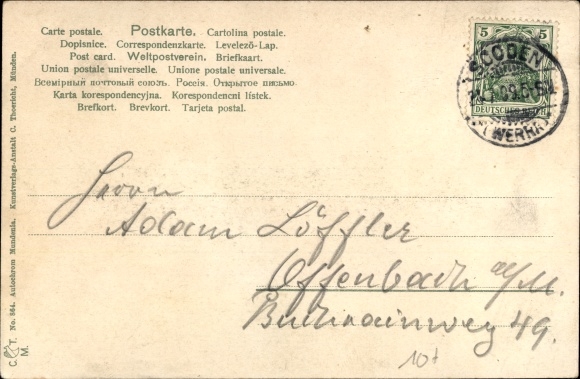 Carte postale. Postkarte. Cartolina postale.
Dopisnice. Correspondenzkarte. Levelező-Lap.
Post card. Weltpostverein. Briefkaart.
Union postale universelle. Unione postale universale.
Всемірный почтовый союзъ. Россія. Открытое письмо.
Karta korespondencyjna. Korespondenční lístek.
Brefkort. Brevkort. Tarjeta postal.
5 5
DEUTSCHES REICH
SOODEN
(WERRA)
Herrn
Adam Löffler
Offenbach a/M.
Buchrainweg 49.
10+
C. T. No. 864. Autochrom Mundania. Kunstverlags-Anstalt C. Theericht, München.
M.